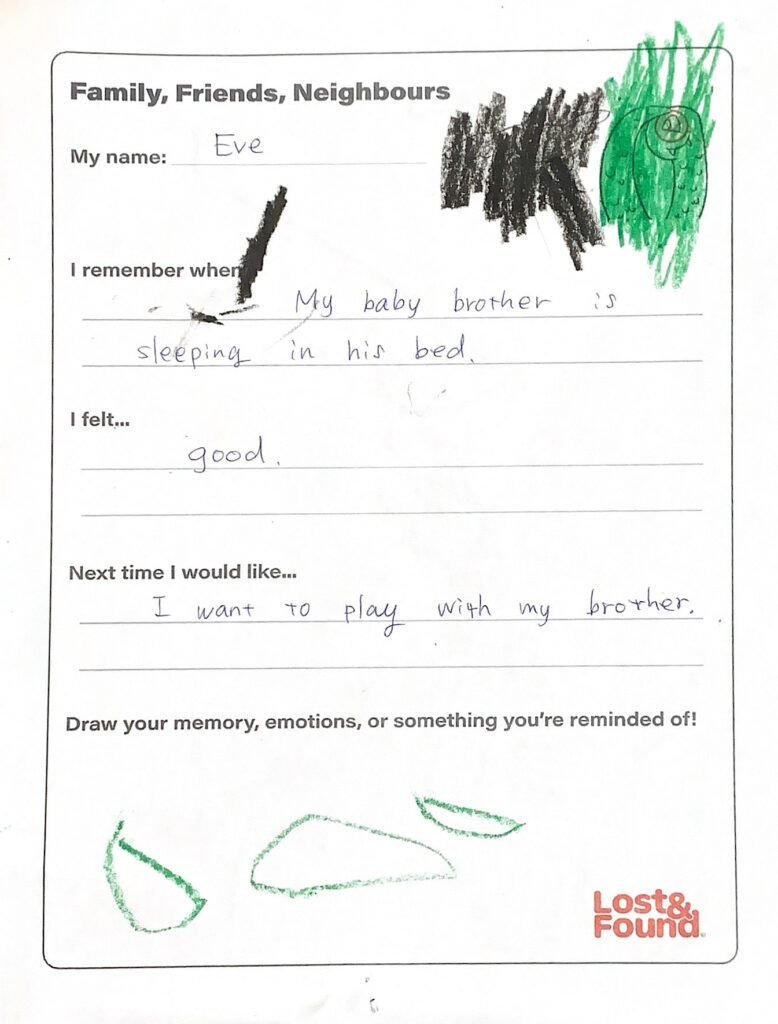 Family, Friends, Neighbours
My name: Eve
I remember when
My baby brother is
sleeping in his bed.
I felt...
good.
Next time I would like...
I want to play with my brother.
Draw your memory, emotions, or something you're reminded of!
Lost&
Found